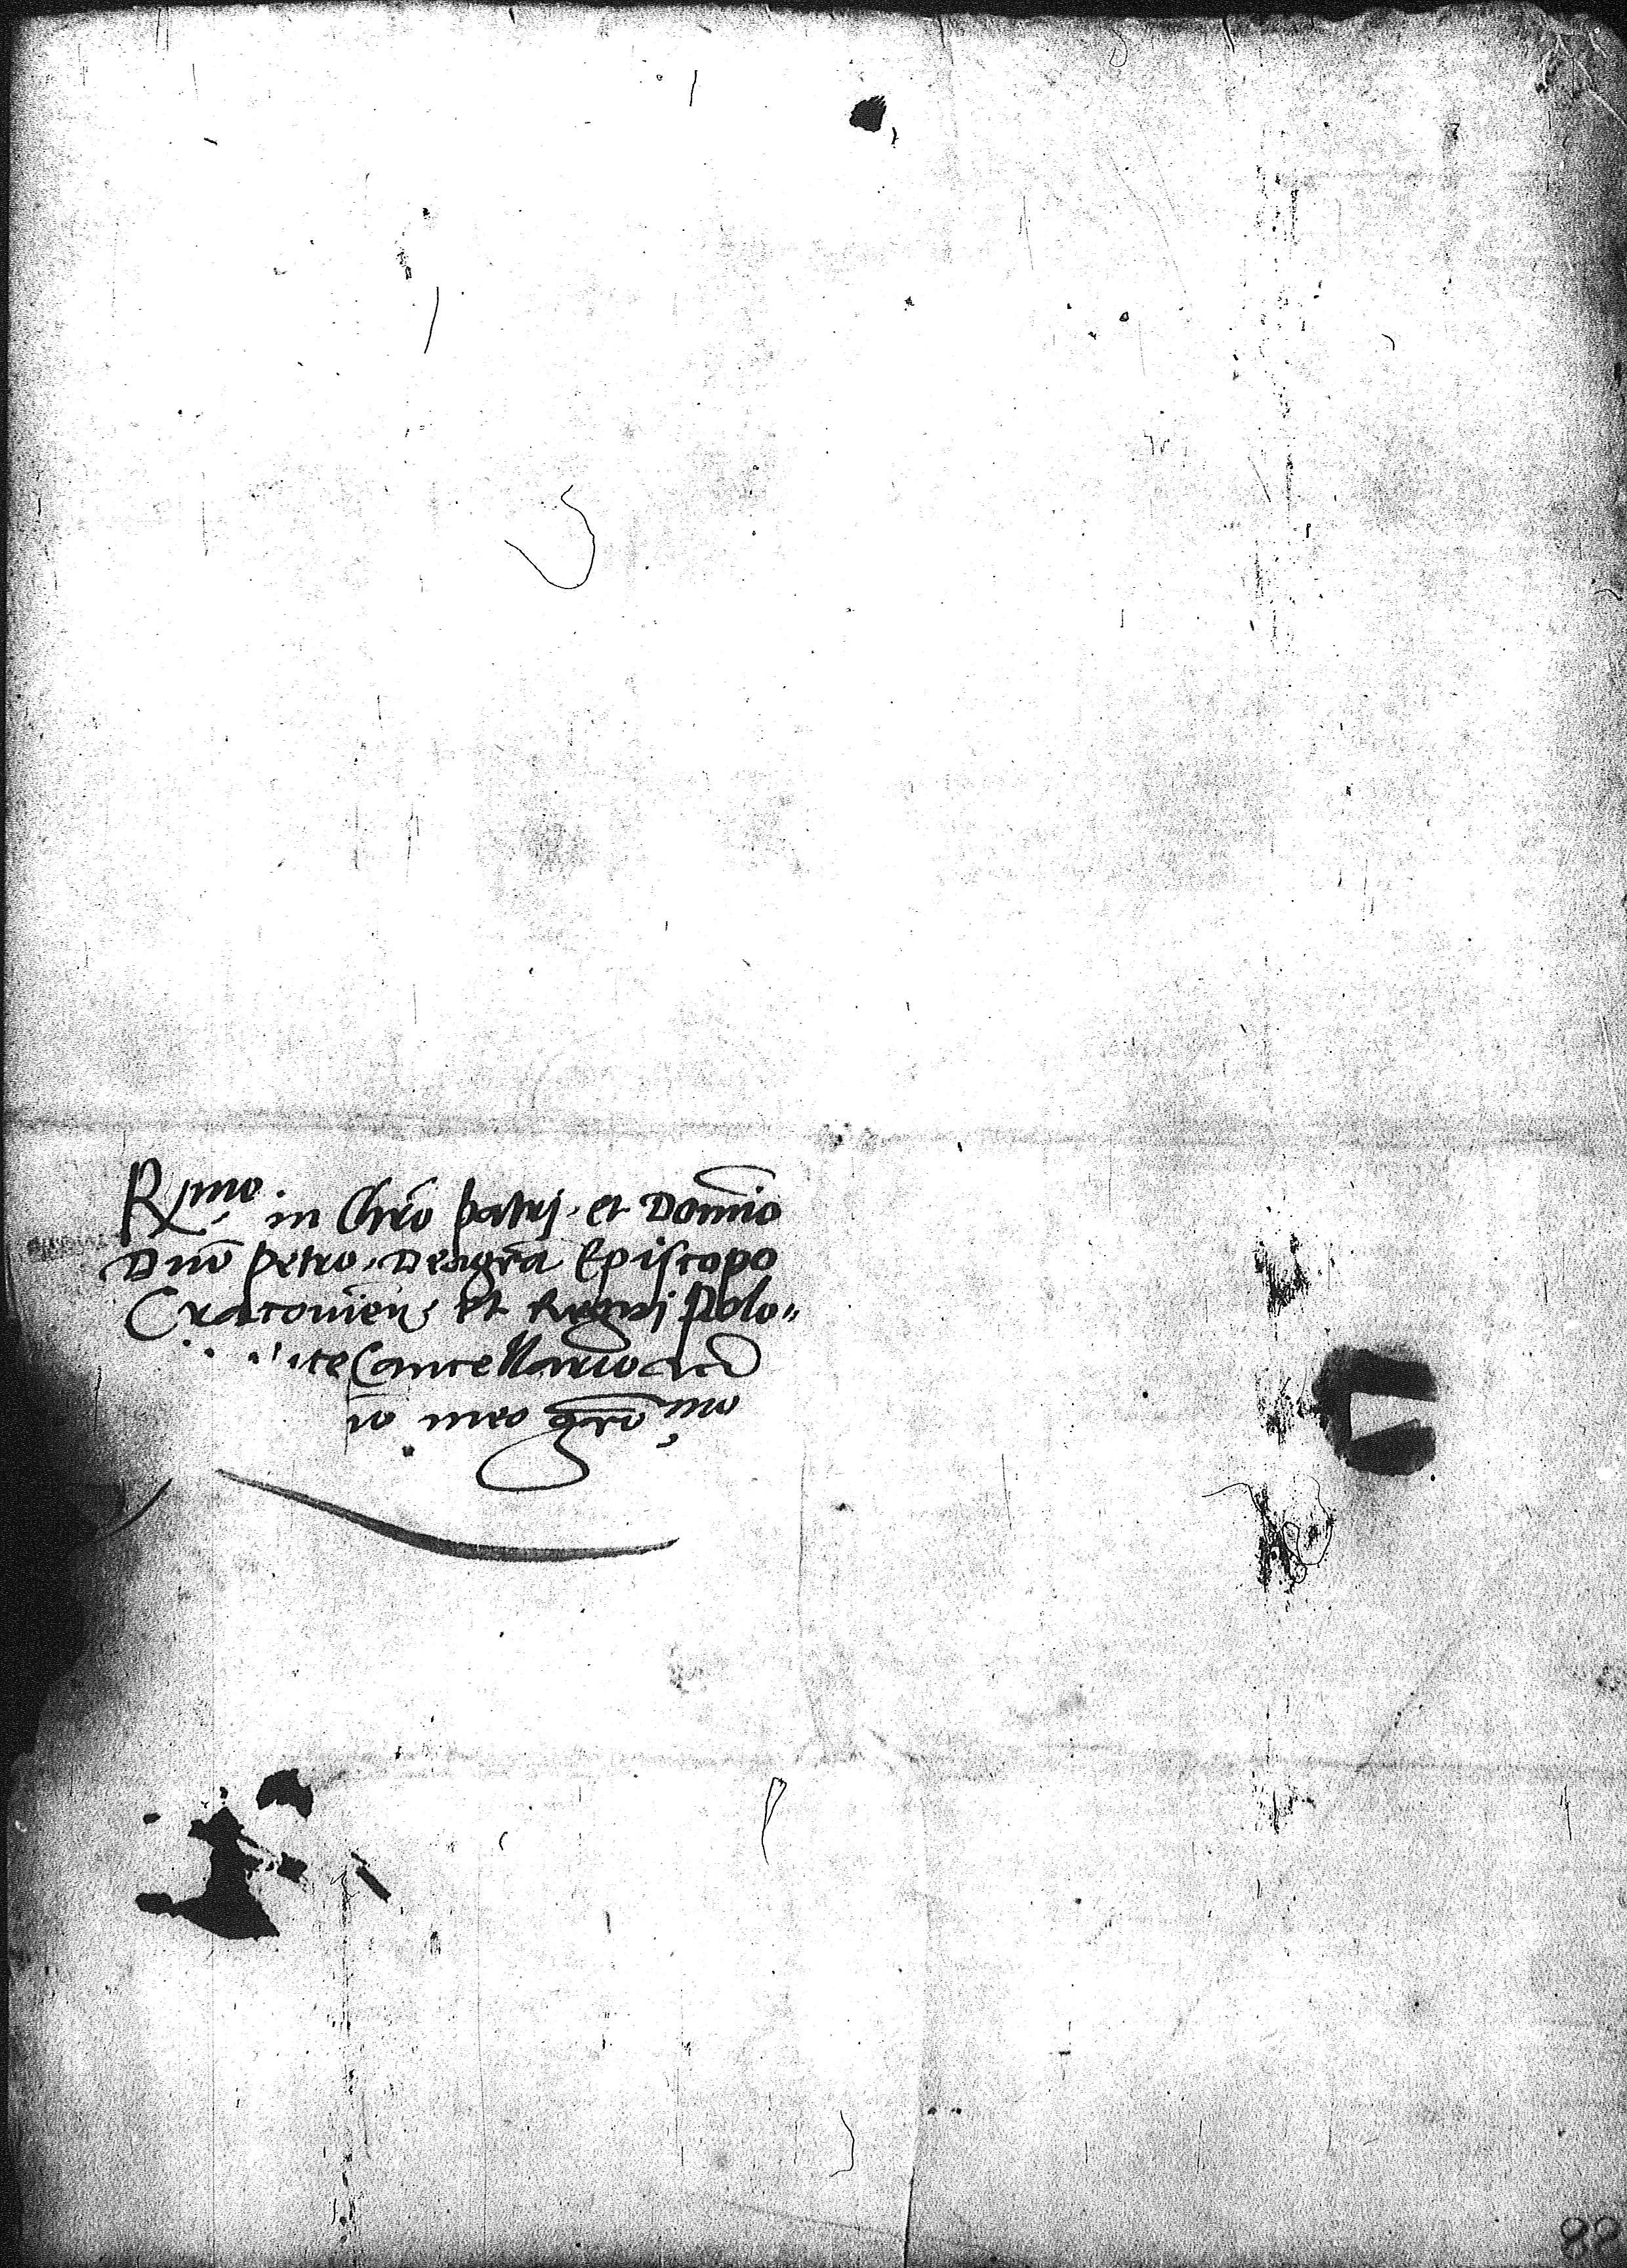 Rmo in Chro patri et Domino
Dno Petro Dei gra Episcopo
Cracovien et Regni Polo„
Vice Cancellario
meo grmo
88